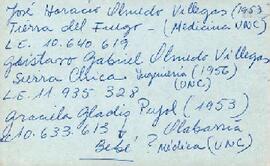 José Horacio Olmedo Villegas (1953
Tierra del Fuego - (Medicina UNC)
L.E. 10.640.619
Gustavo Gabriel Olmedo Villegas
Sierra Chica - Ingeniería (1956)
(UNC)
L.E. 11 935 328
Graciela Gladis Pujol (1953)
10.633.613 Olabarria
Bebé ? Médica (UNC)